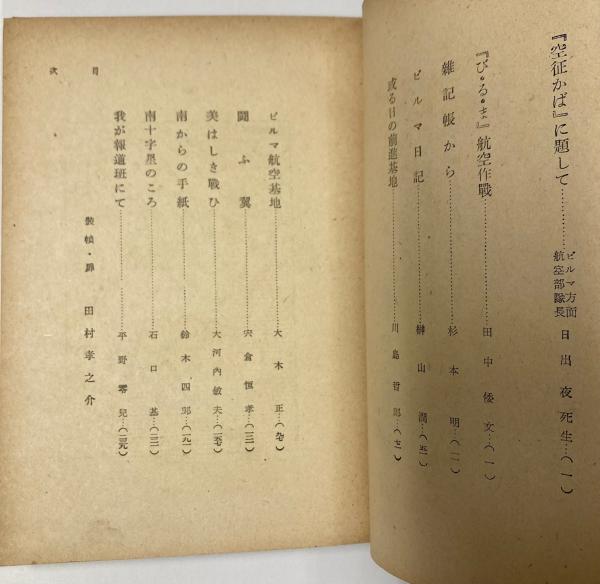 『空征かば』に題して…………ビルマ方面航空部隊長 日出夜死生…(一)
『び・る・ま』航空作戰…………田中倭文…(一)
雜記帳から…………杉本明…(二一)
ビルマ日記…………榊山潤…(五一)
或る日の前進基地…………川島哲郎…(七一)
目次
ビルマ航空基地…………大木正…(九七)
鬪ふ翼…………宍倉恒孝…(一三一)
美はしき戰ひ…………大河內敏夫…(一五七)
南からの手紙…………鈴木四郎…(一九一)
南十字星のころ…………石口基…(二一一)
我が報道班にて…………平野零兒…(二三九)
裝幀・扉 田村孝之介